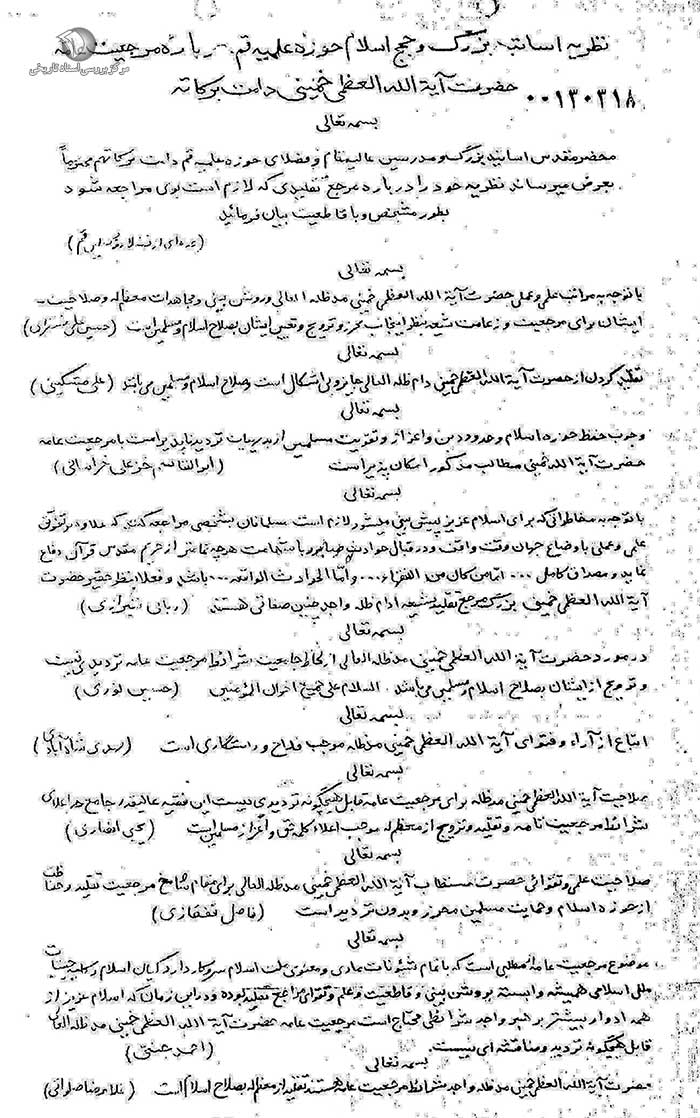 مرکز بررسی اسناد تاریخی
نظریه اساتید بزرگ و حجج اسلام حوزه علمیه قم درباره مرجعیت عامه
حضرت آیة الله العظمی خمینی دامت برکاته
۰۰۱۳۰۳۱۸
بسمه تعالی
محضر مقدس اساتید بزرگ و مدرسین عالیمقام و فضلای حوزه علمیه قم دامت برکاتهم محترماً
بعرض میرساند نظریه خود را درباره مرجع تقلیدی که لازم است بوی مراجعه شود
بطور مشخص و با قاطعیت بیان فرمائید
(عده‌ای از
بسمه تعالی
با توجه به مراتب علمی و عملی حضرت آیة الله العظمی خمینی مدظله العالی و روشن بینی و مجاهدات معظم له و صلاحیت
ایشان برای مرجعیت و زعامت شیعه بنظر اینجانب محرز و ترویج و تعیین ایشان بصلاح اسلام و مسلمین است (حسین علی منتظری)
بسمه تعالی
تقلید کردن از حضرت آیة الله العظمی خمینی دام ظله العالی جایز و بی اشکال است و صلاح اسلام و مسلمین می باشد (علی مشکینی)
بسمه تعالی
وجوب حفظ حوزه اسلام و حدود دین و اعزاز و تقویت مسلمین از بدیهیات تردید ناپذیر است با مرجعیت عامه
حضرت آیة الله خمینی مطالب مذکور امکان پذیر است (ابوالقاسم خزعلی خراسانی)
بسمه تعالی
با توجه به مخاطراتی که برای اسلام عزیز پیش بینی میشود لازم است مسلمانان بشخصی مراجعه کنند که علاوه بر تفوق
علمی و عملی با وضاع جهان وقت واقف و در قبال حوادث با شهامت هر چه تمامتر از حریم مقدس قرآن دفاع
نماید و مصداق کامل ... امّا من کان من الفقهاء ... و امّا الحوادث الواقعه ... باشد و فعلا بنظر حقیر حضرت
آیة الله العظمی خمینی بزرگ مرجع تقلید شیعه ادام ظله واجد چنین صفاتی هستند (ربانی شیرازی)
بسمه تعالی
در مورد حضرت آیة الله العظمی خمینی مدظله العالی از لحاظ جامعیت شرائط مرجعیت عامه تردیدی نیست
و ترویج از ایشان بصلاح اسلام و مسلمین می باشد السلام علی جمیع اخوان المؤمنین (حسین نوری)
بسمه تعالی
اتباع از آراء و فتوای آیة الله العظمی خمینی مدظله موجب فلاح و رستگاری است (مهدی شاه آبادی)
بسمه تعالی
صلاحیت آیة الله العظمی خمینی مدظله برای مرجعیت عامه قابل هیچگونه تردیدی نیست این فقیه عالیقدر جامع حد اعلای
شرائط مرجعیت تامه و تقلید و ترویج از معظم له موجب اعلاء کلمه حق و اعزاز مسلمین است (یحیی انصاری)
بسمه تعالی
صلاحیت علمی و تقوائی حضرت مستطاب آیة الله العظمی خمینی مدظله العالی برای مقام شامخ مرجعیت تقلید و حفاظت
از حوزه اسلام و حمایت مسلمین محرز و بدون تردید است (فاضل قفقازی)
بسمه تعالی
موضوع مرجعیت عامه مطلبی است که با تمام شئونات مادی و معنوی ملت اسلام سر و کار دارد کیان اسلام و حیثیات
ملل اسلامی همیشه وابسته بروشن بینی و قاطعیت و علم و تقوای مراجع تقلید بوده و در این زمان که اسلام عزیز از
همه ادوار بیشتر برهبر واجد شرائطی محتاج است مرجعیت عامه حضرت آیة الله العظمی خمینی مدظله العالی
قابل هیچگونه تردید و مناقشه ای نیست. (احمد جنتی)
بسمه تعالی
حضرت آیة الله العظمی خمینی مدظله واجد شرائط مرجعیت عامه هستند تقلید از معظم له بصلاح اسلام است (غلامرضا صلواتی)